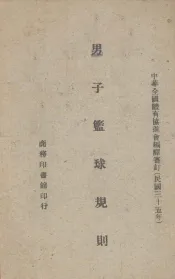 中華全國體育協進會編譯審訂(民國三十五年)
男子籃球規則
商務印書館印行